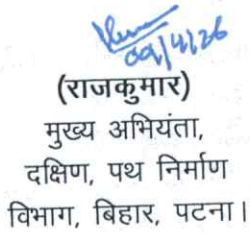 09/4/26
(राजकुमार)
मुख्य अभियंता,
दक्षिण, पथ निर्माण
विभाग, बिहार, पटना।